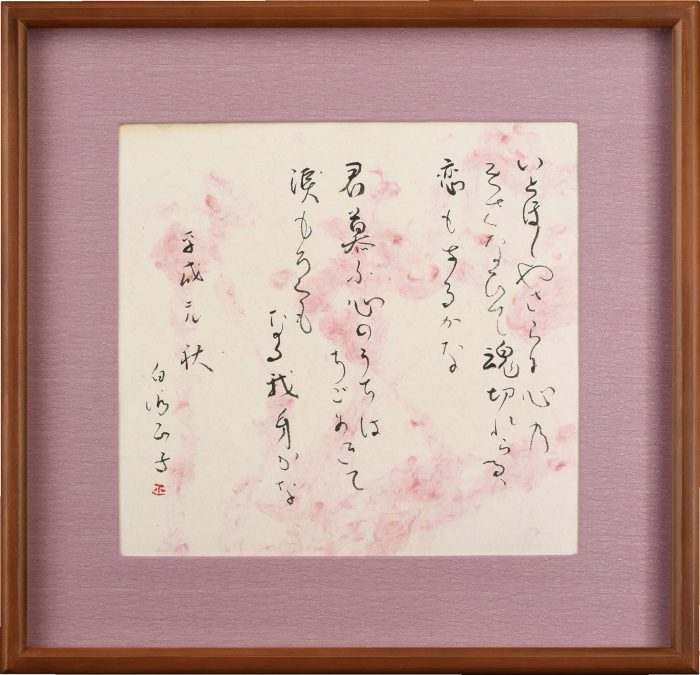 いとほしやさらに心の
をさなびて魂切れらるる
恋もするかな
君慕ふ心のうちは
ちごめきて
涙もろくも
なる我身かな
平成元 秋
白洲正子
正